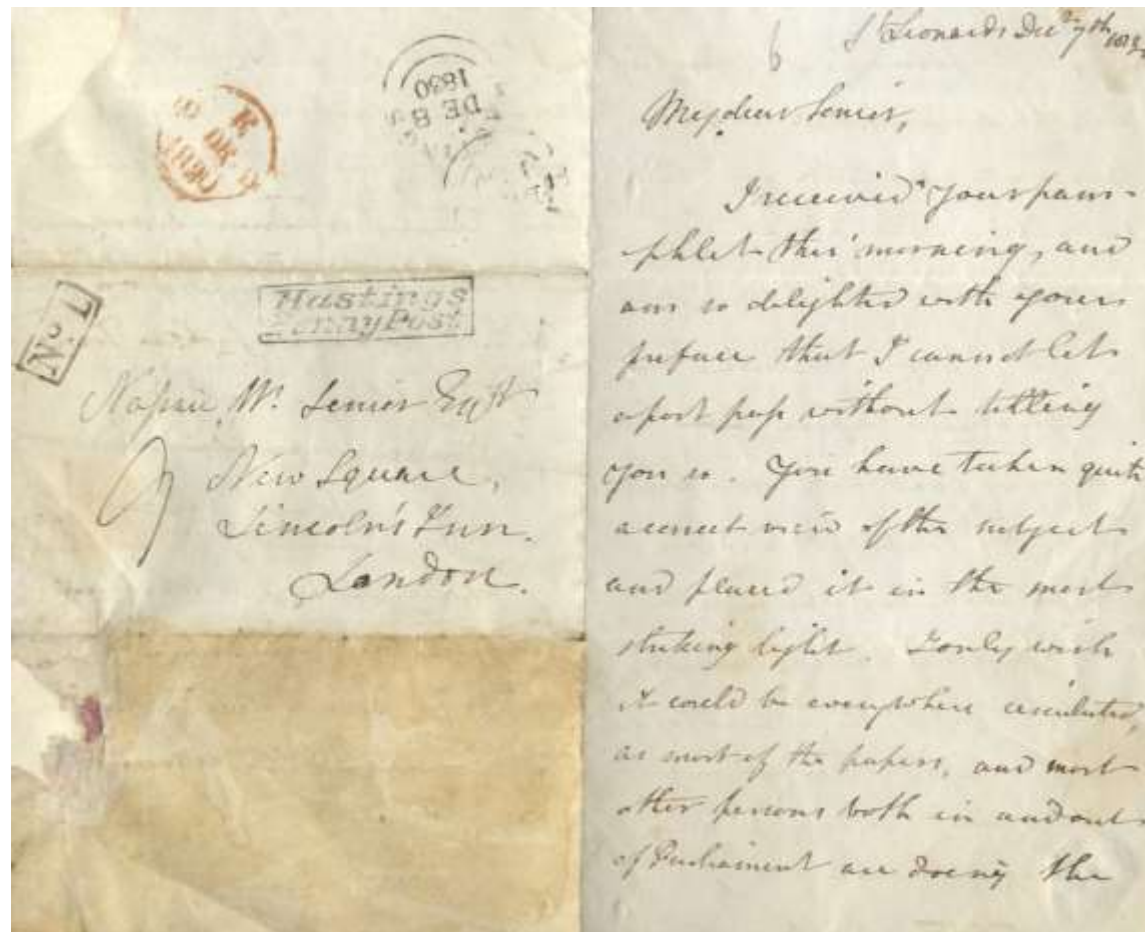 DE 8
1830
Hastings
Penny Post
No. 1
Nassau W. Senior Esqre
9 New Square,
Lincoln's Inn.
London.
6
St Leonards Decr 7th
My dear Senior,
I received your pam-
-phlet this morning, and
am so delighted with your
preface that I cannot let
a post pass without telling
you so. You have taken quite
a correct view of the subject
and placed it in the most
striking light. I only wish
it could be everywhere circulated,
as most of the papers, and most
other persons both in and out
of Parliament are doing the